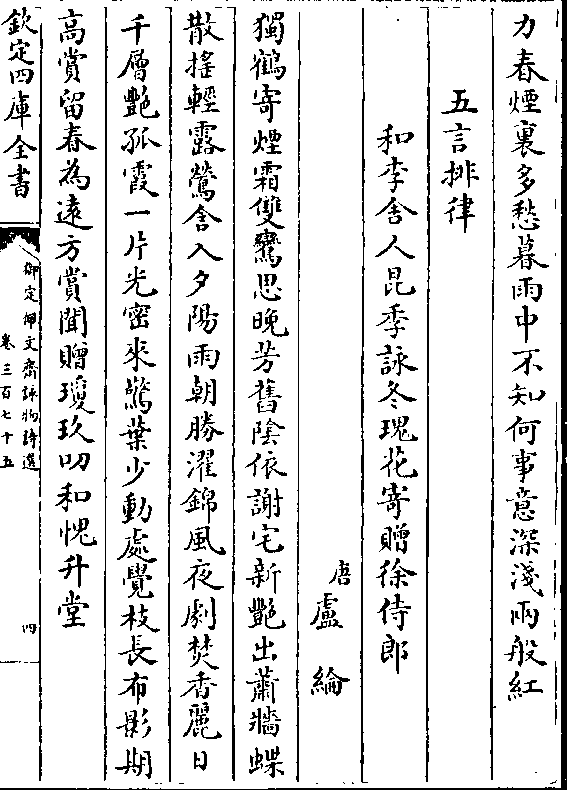 力春煙裏多愁暮雨中不知何事意深淺兩般紅
五言排律
和李舍人昆季詠冬瑰花寄贈徐侍郎
唐盧綸
獨鶴寄煙霜雙鸞思晚芳舊陰依謝宅新艶出蕭牆蝶
散搖輕露鶯含入夕陽雨朝勝濯錦風夜劇焚香麗日
千層艶孤霞一片光密來驚葉少動處覺枝長布影期
高賞留春為遠方賞聞贈瓊玖叨和愧升堂
欽定四庫全書
御定佩文齋詠物詩選
卷三百七十五
四